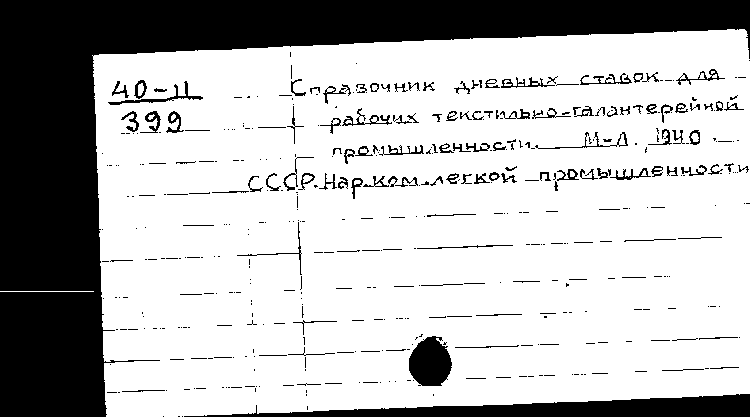 40-11 Справочник дневных ставок для
399 рабочих текстильно-галантерейной
промышленности. М-Л., 1940.
СССР. Нар. ком. легкой промышленности